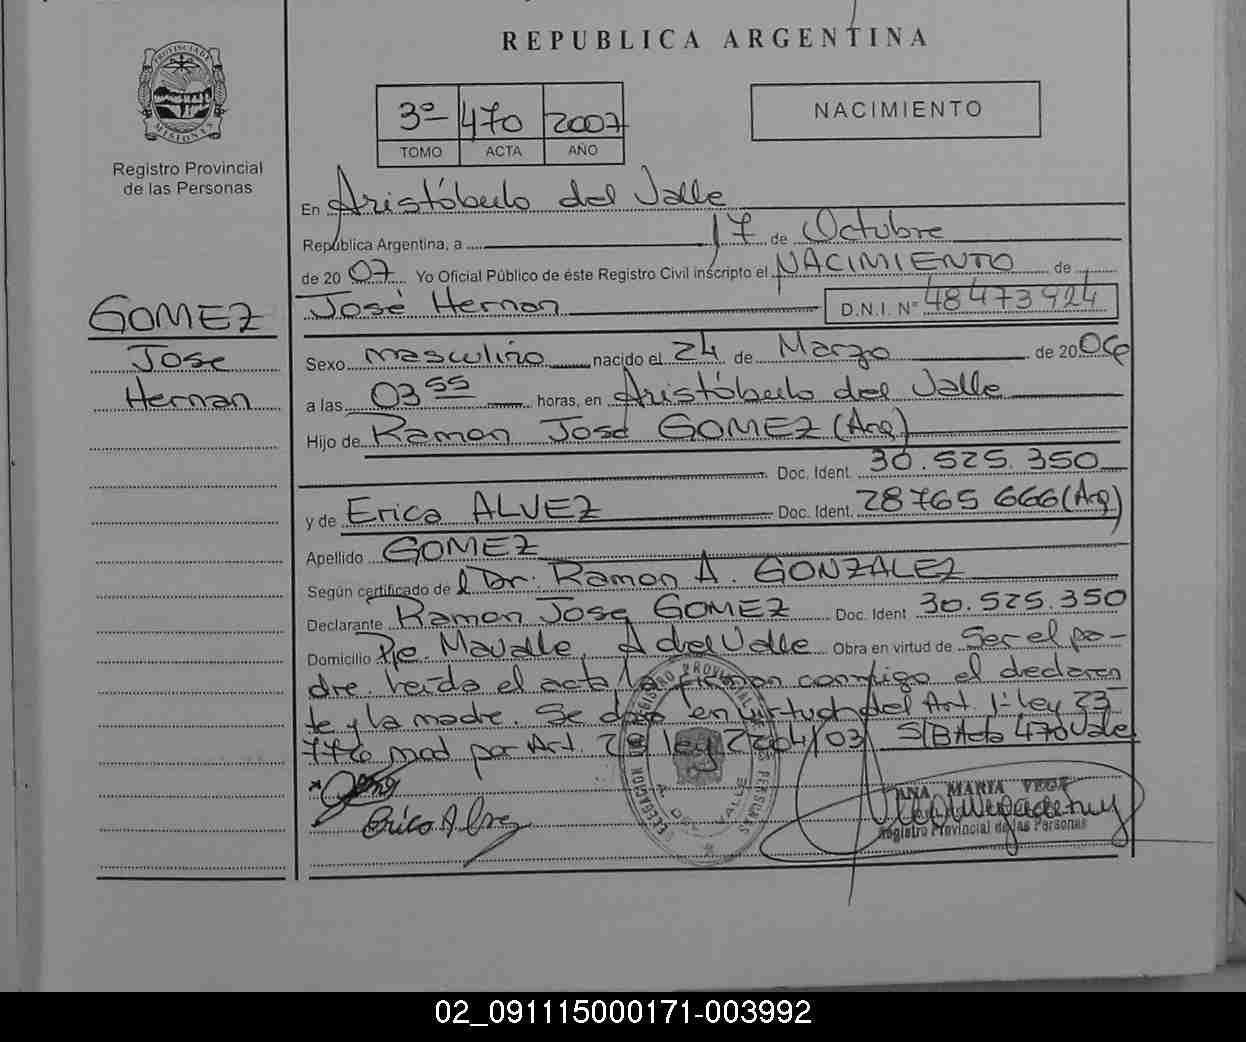 REPUBLICA ARGENTINA
PROVINCIA DE MISIONES
Registro Provincial
de las Personas
3º 470 2007
TOMO ACTA AÑO
NACIMIENTO
En Aristóbulo del Valle
Republica Argentina, a 17 de Octubre
de 2007 Yo Oficial Público de éste Registro Civil inscripto el NACIMIENTO de
José Hernan D.N.I. Nº 48473924
GOMEZ
Jose
Hernan
Sexo masculino nacido el 24 de Marzo de 2006
a las 03 55 horas, en Aristóbulo del Valle
Hijo de Ramon Jose GOMEZ (Arg)
Doc. Ident. 30.525.350
y de Erica ALVEZ Doc. Ident. 28765 666 (Arg)
Apellido GOMEZ
Según certificado de l Dr. Ramon A. GONZALEZ
Declarante Ramon Jose GOMEZ Doc. Ident 30.525.350
Domicilio Pje. Mavalle, A del Valle Obra en virtud de Ser el pa-
dre. leida el acta, la firman conmigo el declaran
te y la madre. Se en virtud del Art. 1º ley 23
776 mod por Art. 2º ley 2204/03 S/B Acta 470 Vale
Erica Alvez
DELEGACION REGISTRO PROVINCIAL DE LAS PERSONAS
A. DEL VALLE
ANA MARIA VEGA
Registro Provincial de las Personas
02_091115000171-003992